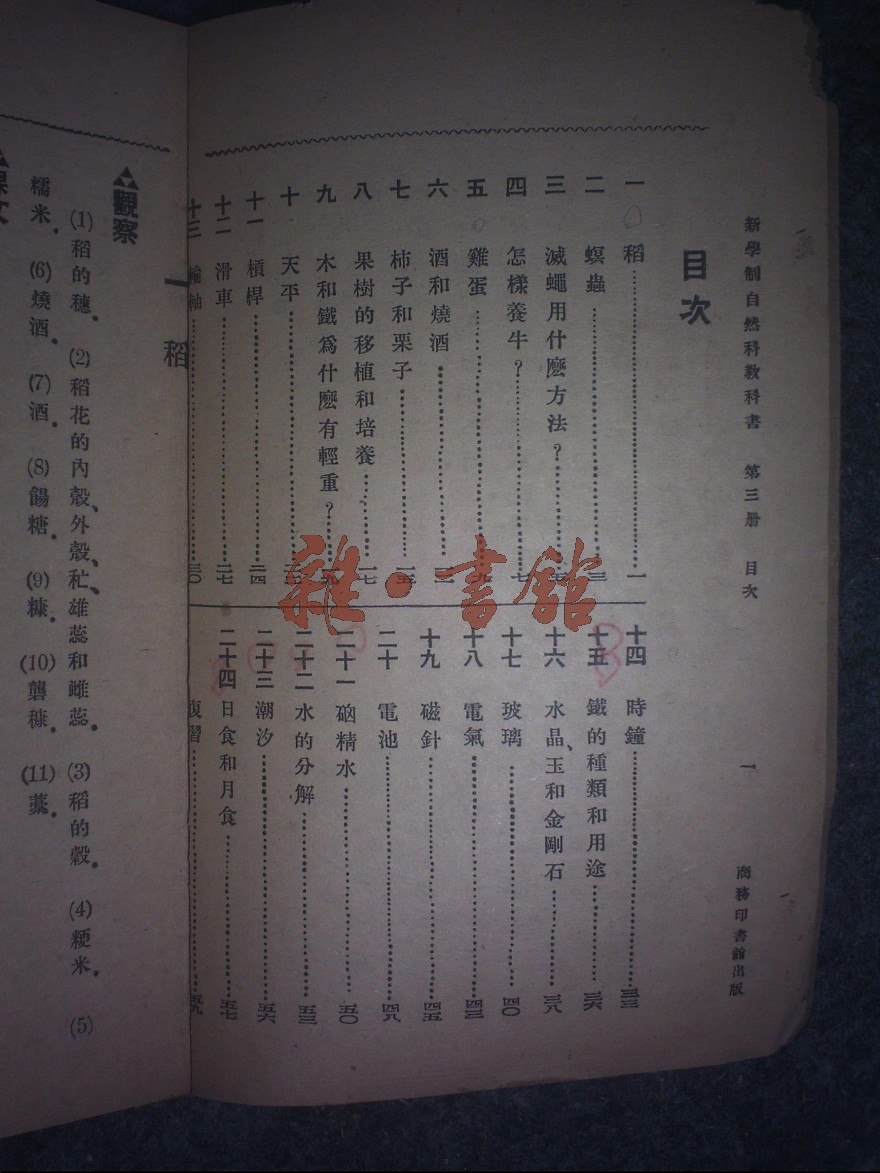 新學制自然科教科書 第三册 目次 一 商務印書館出版
目次
一 稻 一
二 螟蟲 三
三 滅蠅用什麽方法？ 五
四 怎樣養牛？ 七
五 雞蛋 九
六 酒和燒酒
七 柿子和栗子 一五
八 果樹的移植和培養 一七
九 木和鐵爲什麽有輕重？
十 天平
十一 槓桿 二四
十二 滑車 二七
十三 輪軸 三〇
十四 時鐘 三三
十五 鐵的種類和用途 三六
十六 水晶、玉和金剛石 三八
十七 玻璃 四〇
十八 電氣 四三
十九 磁針 四五
二十 電池 四八
二十一 硇精水 五〇
二十二 水的分解 五三
二十三 潮汐 五六
二十四 日食和月食 五七
復習 五九
雜·書館
一 稻
觀察
(1)稻的穗。 (2)稻花的內殼、外殼、秕、雄蕊和雌蕊。 (3)稻的穀。 (4)粳米。 (5)
糯米。 (6)燒酒。 (7)酒。 (8)餳糖。 (9)糠。 (10)礱糠。 (11)藁。